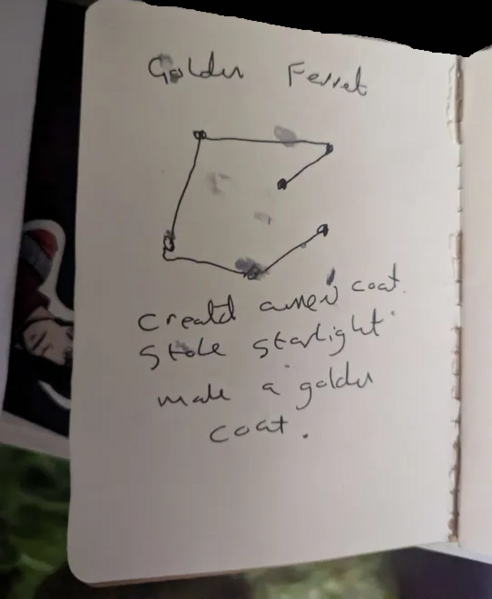 Golden Ferret
created coat.
Stole starlight
make a golden
coat.